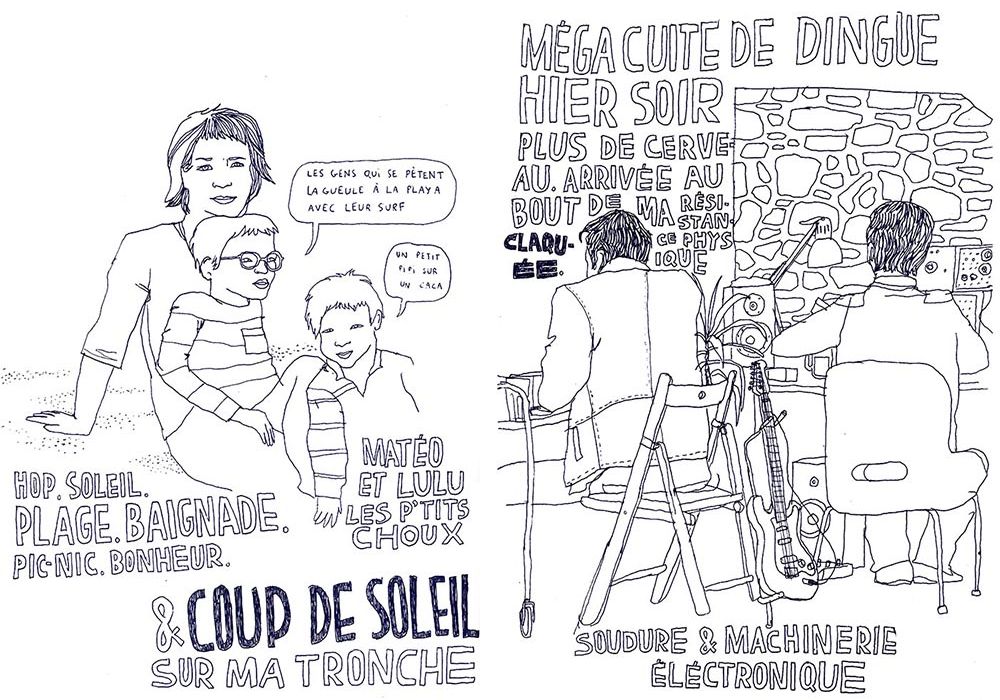 LES GENS QUI SE PÈTENT
LA GUEULE À LA PLAYA
AVEC LEUR SURF
UN PETIT
PIPI SUR
UN CACA
MATÉO
ET LULU
LES P'TITS
CHOUX
HOP. SOLEIL.
PLAGE. BAIGNADE.
PIC-NIC. BONHEUR.
& COUP DE SOLEIL
SUR MA TRONCHE
MÉGA CUITE DE DINGUE
HIER SOIR
PLUS DE CERVE-
AU. ARRIVÉE AU
BOUT DE MA RÉSI-
STAN-
CE PHYS
IQUE
CLAQU-
ÉE.
SOUDURE & MACHINERIE
ÉLÉCTRONIQUE